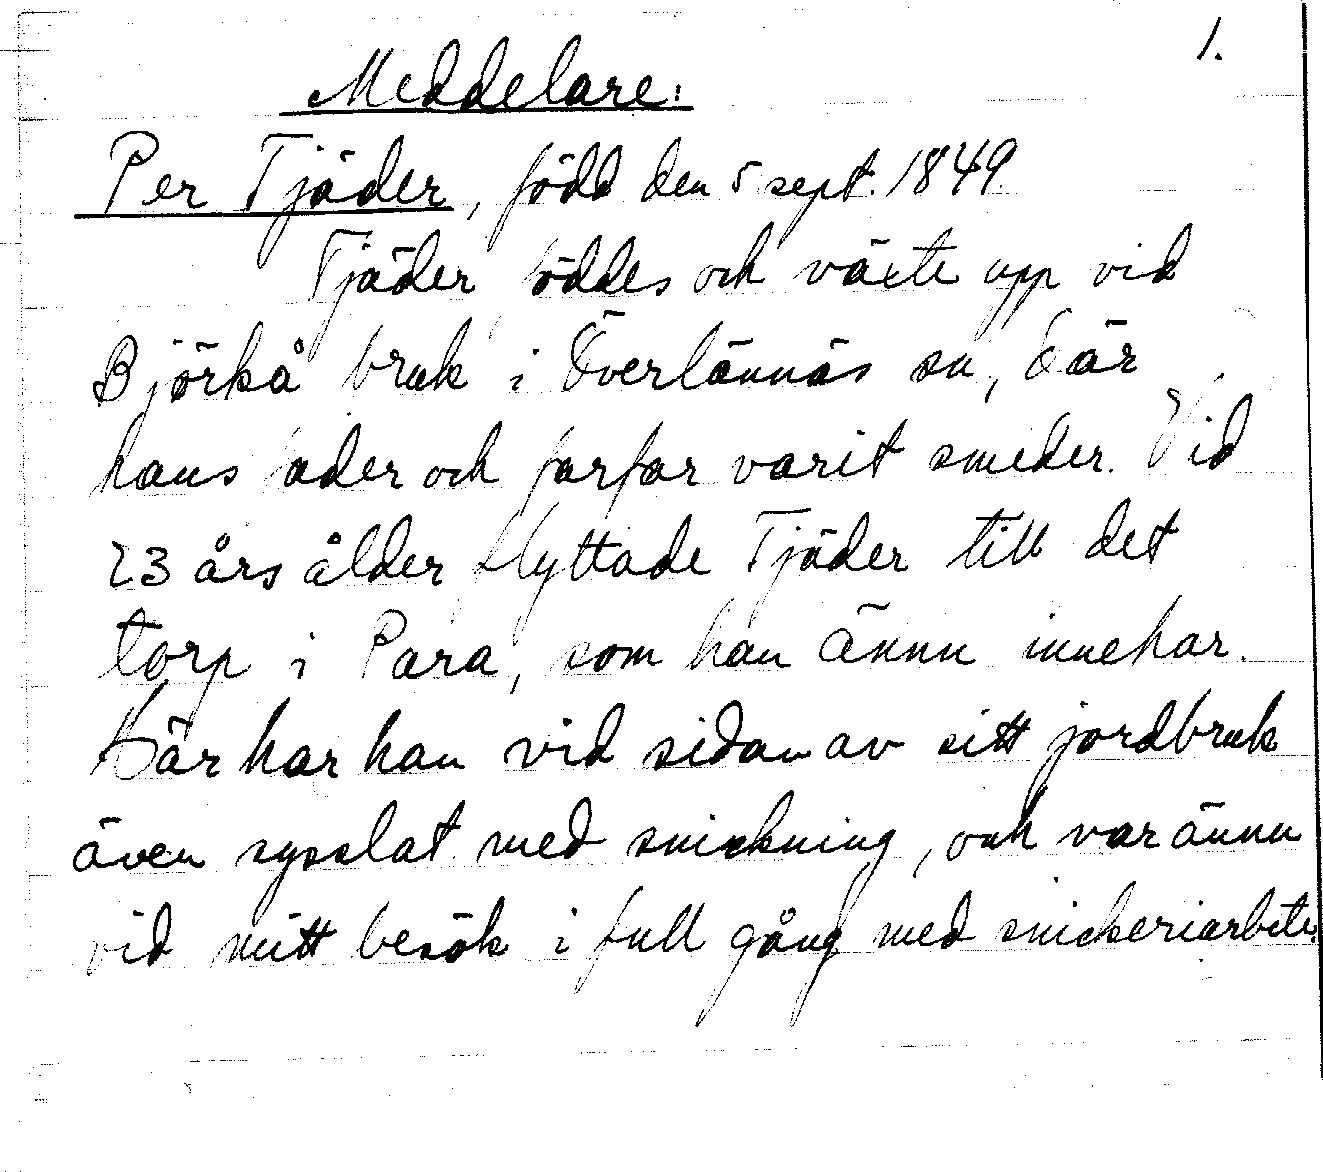 1.
Meddelare:
Per Tjäder, född den 5 sept. 1849.
Tjäder föddes och växte upp vid
Björkå bruk i Överlännäs sn, där
hans fader och farfar varit smeder. Vid
23 års ålder flyttade Tjäder till det
torp i Para, som han ännu innehar.
Där har han vid sidan av sitt jordbruk
även sysslat med snickning, och var ännu
vid mitt besök i full gång med snickeriarbete.